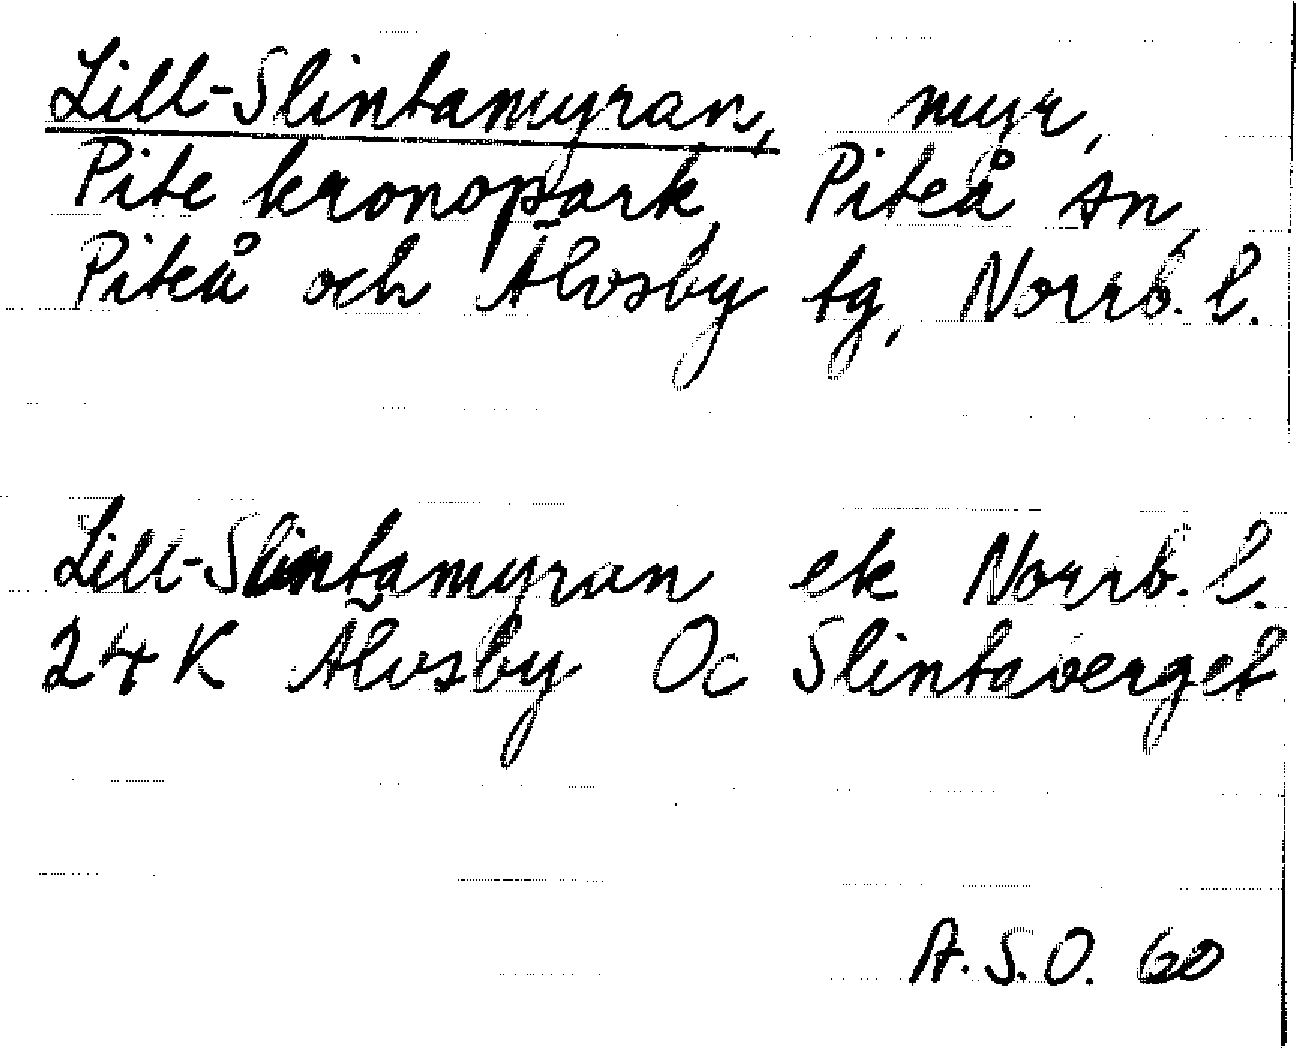 Lill-Slintamyran, myr,
Pite kronopark, Piteå sn,
Piteå och Älvsby tg, Norrb. l.
Lill-Slintamyran ek Norrb. l.
24K Älvsby Oc Slintaverget
A.S.O. 60